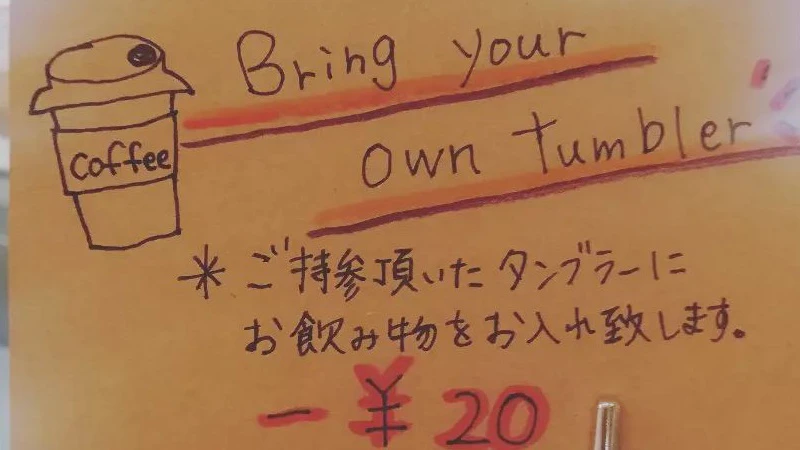 Bring your
coffee
own tumbler
* ご持参頂いたタンブラーに
お飲み物をお入れ致します。
- ¥ 20